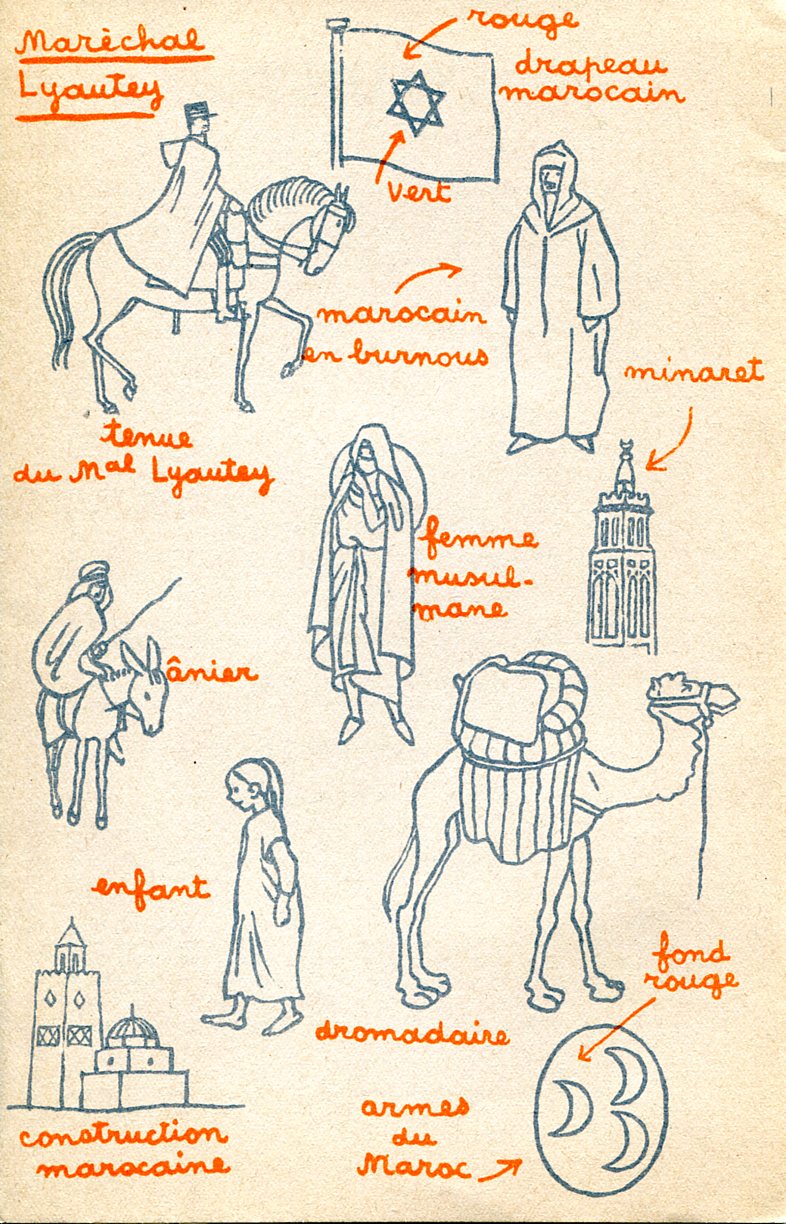 Maréchal
Lyautey
rouge
drapeau
marocain
vert
marocain
en burnous
minaret
tenue
du Mal Lyautey
femme
musul-
mane
ânier
enfant
fond
rouge
dromadaire
construction
marocaine
armes
du
Maroc